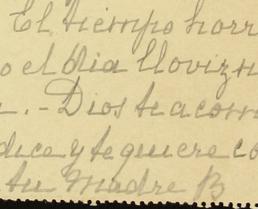 El tiempo horr
o el dia llovizn
. - Dios te acom
dice y te quiere co
tu Madre B